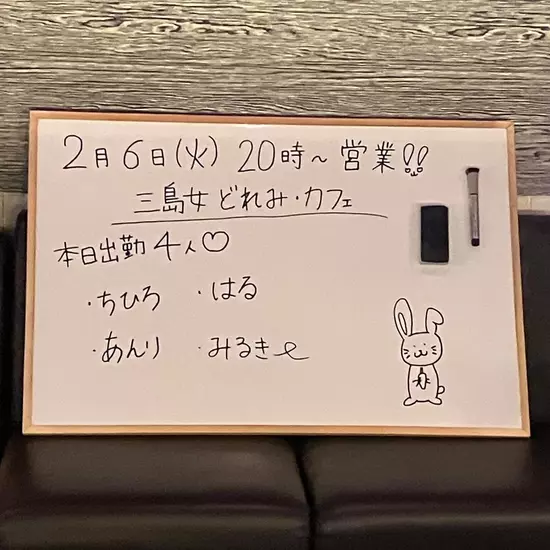 2月6日(火) 20時~ 営業!!
三島女 どれみ・カフェ
本日出勤 4人♡
・ちひろ ・はる
・あんり ・みるきー